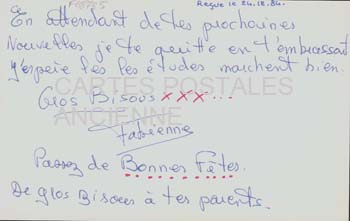 Reçue le 24.12.84.
En attendant de tes prochaines
Nouvelles, je te quitte en t'embrassant
J'espère les les études marchent bien.
Gros Bisous xxx...
CARTES POSTALES
ANCIENNE
Fabienne
Passez de Bonnes Fêtes.
De gros Bisous à tes parents.